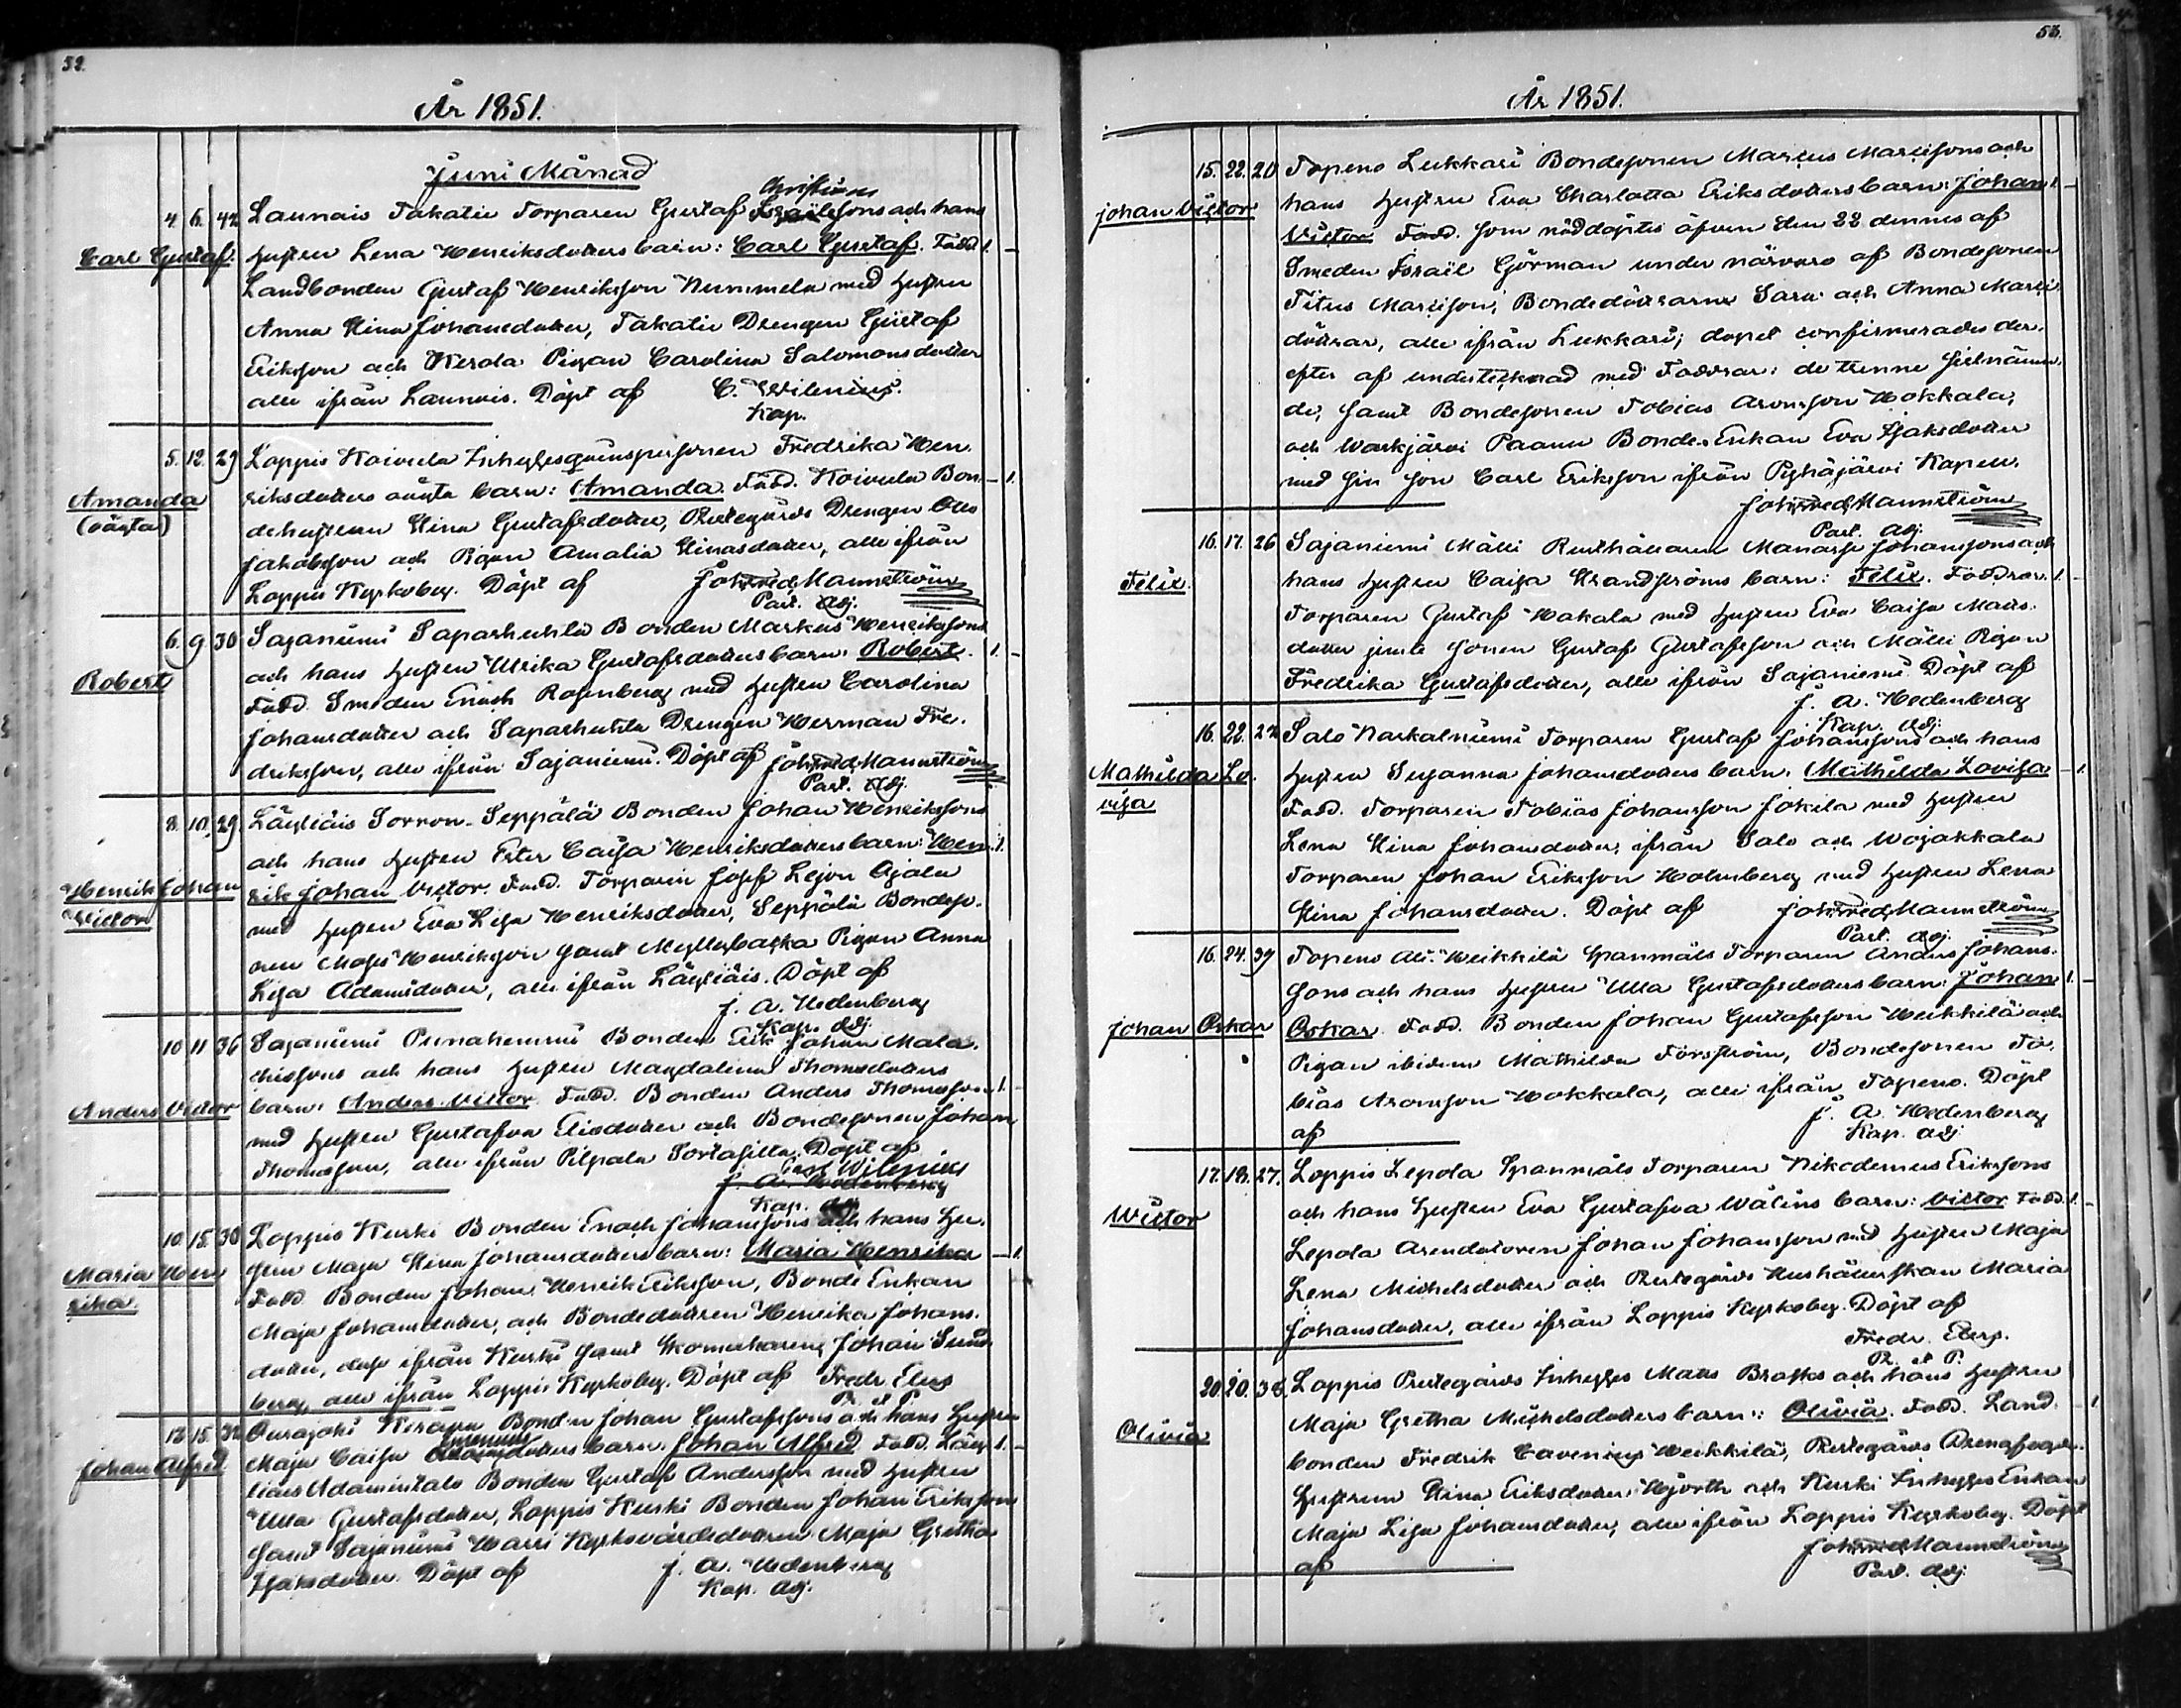 52.
År 1851.
Juni Månad
Christians
4. 6. 42 Launois Takalie Torparen Gustaf sons och hans
Carl Gustaf. hustru Lena Henriksdotters barn: Carl Gustaf. Fadd. 1. –
Landbonden Gustaf Henriksson Nummela med hustru
Anna Stina Johansdotter, Takalie Drengen Gustaf
Eriksson och Kerola Pigan Carolina Salomonsdotter
alle ifrån Launois. Döpt af C. Wilenius.
Kap.
5. 12. 29 Loppis Koivula Inhyses Fredrika Hen-
Amanda riksdotters oäkta barn: Amanda. Fadd. Koivula Bon- – 1.
(oäkta) dehustrun Stina Gustafsdotter, Prestegårds Drengen Otto
Jakobsson och Pigan Amalia Stinasdotter, alle ifrån
Loppis Kyrkoby. Döpt af Joh Fred Mannström
Past. Adj.
6. 9. 30 Sajaniemi Saparhuhta Bonden Markus Henrikssons
Robert och hans hustru Ulrika Gustafsdotters barn: Robert. 1. –
Fadd. Smeden Enoch Rosenberg med hustru Carolina
Johansdotter och Saparhuhta Drengen Herman Fre-
driksson, alle ifrån Sajaniemi. Döpt af Joh Fred Mannström
Past. Adj.
8. 10. 29 Läyliäis Sorron-Seppälä Bonden Johan Henrikssons
och hans hustru Ester Caisa Henriksdotters barn: Hen- 1.
Henrik Johan rik Johan Victor. Fadd. Torparen Josef Lejon Ojala
Victor med hustru Eva Lisa Henriksdotter, Seppälä Bondeso-
nen Moses Henriksson samt Myllybacka Pigan Anna
Lisa Adamsdotter, alle ifrån Läyliäis. Döpt af
J. A. Hedenberg
Kap. Adj.
10 11 36 Sajaniemi Pennaniemi Bonden Erik Johan Mala-
chiassons och hans hustru Magdalena Thomasdotters
Anders Victor barn: Anders Victor. Fadd. Bonden Anders Thomasson 1. –
med hustru Gustafva Eliedotter och Bondesonen Johan
Thomasson, alle ifrån Pilpala Sortasilta. Döpt af
Carl Wilenius
J. A. Hedenberg
Kap.
10. 15. 30 Loppis Kurki Bonden Enoch Johanssons och hans hu-
stru Maja Stina Johansdotters barn: Maria Henrika – 1.
Maria Hen Fadd. Bonden Johan Henrik Eriksson, Bonde Enkan
rika. Maja Johansdotter, och Bondedottren Henrika Johans-
dotter, desse ifrån Kurki samt Skomakaren Johan Sund-
berg, alle ifrån Loppis Kyrkoby. Döpt af Fredr. Elers
P. et P.
12 15 32 Ourajoki Kerapu Bonden Johan Gustafssons och hans hustru
Maja Caisa barn: Johan Alfred Fadd. Läy- 1. –
Johan Alfred liäis Adamintalo Bonden Gustaf Andersson med hustru
Ulla Gustafsdotter, Loppis Kurki Bonden Johan Eriksson
samt Sajaniemi Harri Kyrkovärdsdottren Maja Gretha
Isaksdotter. Döpt af J. A. Hedenberg
Kap. Adj.
53.
År 1851.
15. 22. 20 Topeno Lukkari Bondesonen Marcus Marcissons och
Johan Victor hans hustru Eva Charlotta Eriksdotters barn: Johan 1. –
Victor. Fadd. som nöddöptes äfven den 22 dennes af
Smeden Israël Görman under närvaro af Bondesonen
Titus Marcisson, Bondedöttrarne Sara och Anna Marci-
döttrar, alle ifrån Lukkari; dopet confirmerades der-
efter af undertecknad med Faddrar: de trenne sistnämn-
de, samt Bondesonen Tobias Aronsson Hokkala,
och Warkjärvi Paanu Bonde-Enkan Eva Isaksdotter
med sin son Carl Eriksson ifrån Pyhäjärvi Kapell.
Joh Fred Mannström
Past. Adj.
16. 17. 26 Sajaniemi Mälli Rusthållaren Manasse Johanssons och
Felix. hans hustru Caisa Strandströms barn: Felix. Faddrar: 1. –
Torparen Gustaf Hakala med hustru Eva Caisa Matts-
dotter jemte sonen Gustaf Gustafsson och Mälli Pigan
Fredrika Gustafsdotter, alle ifrån Sajaniemi. Döpt af
J. A. Hedenberg
Kap. Adj.
16. 22. 22 Salo Narkalniemi Torparen Gustaf Johanssons och hans
Mathilda Lo- hustru Susanna Johansdotters barn: Mathilda Lovisa – 1.
visa Fadd. Torparen Tobias Johansson Jokila med hustru
Lena Stina Johansdotter, ifrån Salo och Wojakkala
Torparen Johan Eriksson Holmberg med hustru Lena
Stina Johansdotter. Döpt af Joh Fred Mannström
Past. Adj.
16. 24. 39 Topeno Ali-Heikkilä Spanmåls Torparen Anders Johans-
sons och hans hustru Ulla Gustafsdotters barn: Johan 1. –
Johan Oskar Oskar. Fadd. Bonden Johan Gustafsson Heikkilä och
Pigan ibidem Mathilda Forsström, Bondesonen To-
bias Aronsson Hokkala, alle ifrån Topeno. Döpt
af J. A. Hedenberg
Kap. Adj
17. 18. 27. Loppis Lepola Spanmåls Torparen Nikodemus Erikssons
Wictor och hans hustru Eva Gustafva Wälins barn: Victor Fadd. 1. –
Lepola Arendatoren Johan Johansson med hustru Maja
Lena Michelsdotter och Prestegårds Hushållerskan Maria
Johansdotter, alle ifrån Loppis Kyrkoby. Döpt af
Fredr. Elers.
P. et P.
20. 20. 36. Loppis Prestegårds Inhyses Matts Brasks och hans hustru
Olivia Maja Gretha Michelsdotters barn: Olivia. Fadd. Land- – 1
bonden Fredrik Cavenius Heikkilä, Prestegårds
hustrun Stina Eriksdotter Hjorth och Kurki Inhyses Enkan
Maja Lisa Johansdotter, alle ifrån Loppis Kyrkoby. Döpt
af Joh Fred Mannström
Past. Adj